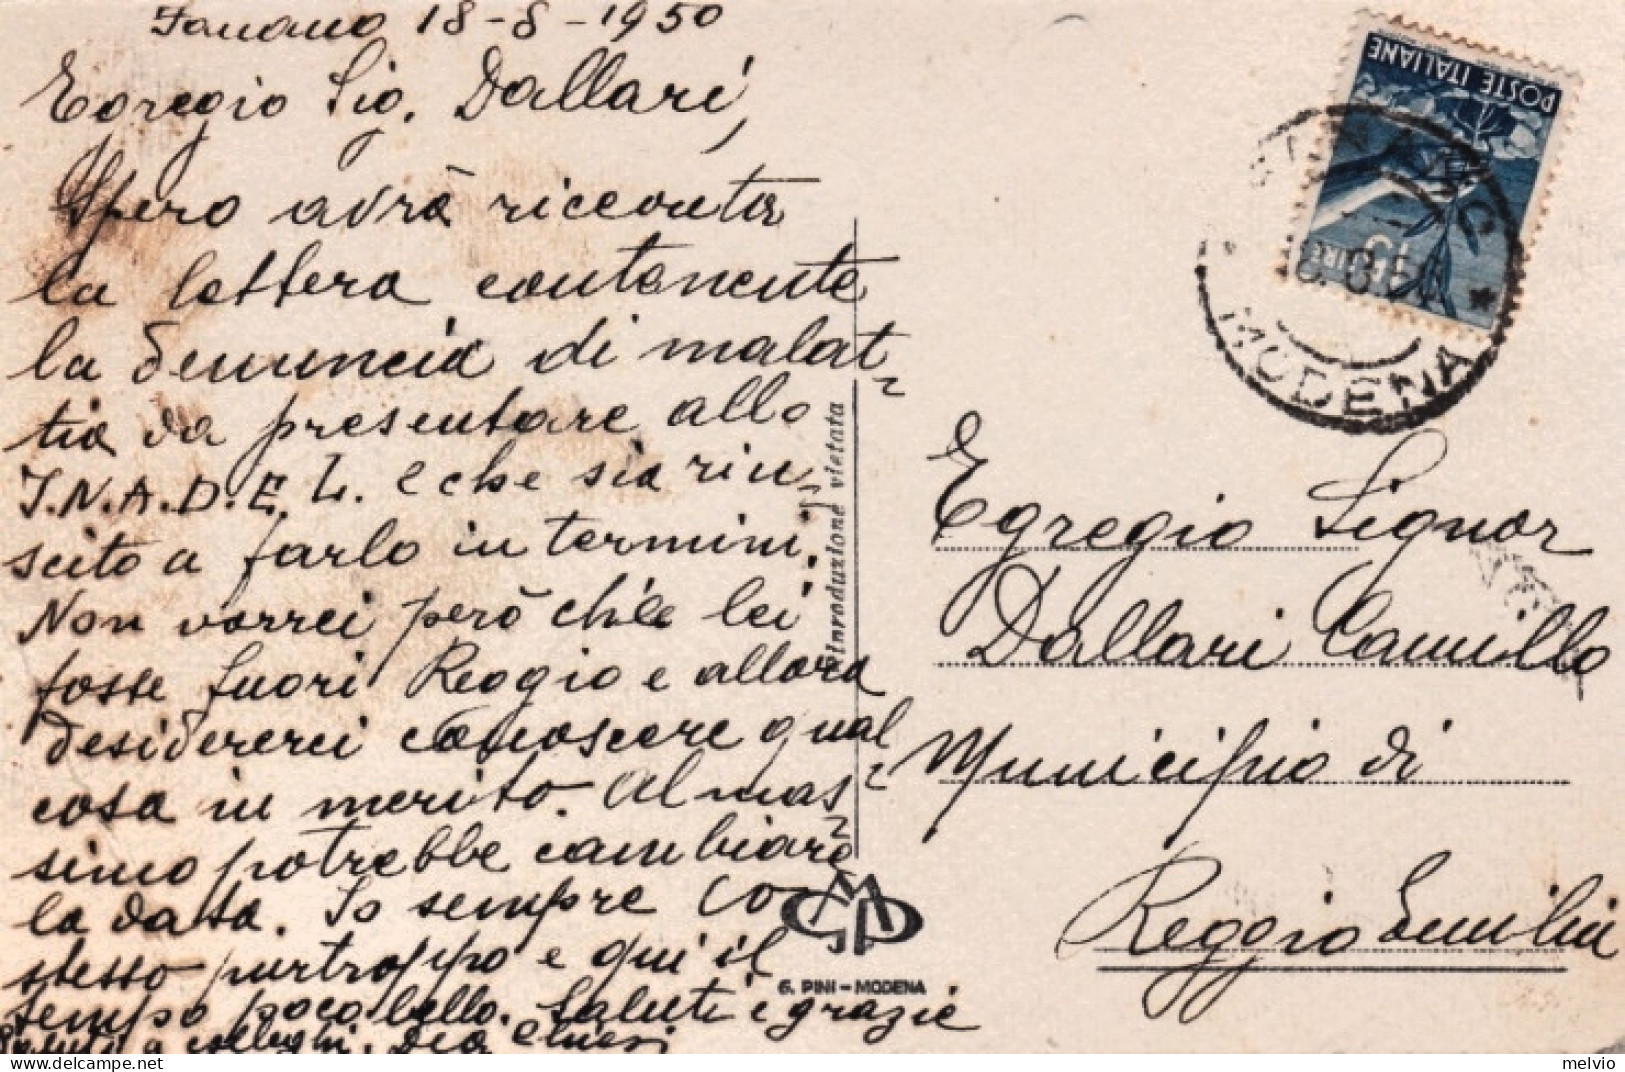 Fanano 18-8-1950
Egregio Sig. Dallari,
Spero avrà ricevuta
la lettera contenente
la denuncia di malat=
tia da presentare allo
I.N.A.D.E.L. e che sia riu=
scito a farlo in termini.
Non vorrei però ch'è lei
fosse fuori Reggio e allora
desidererei conoscere qual=
cosa in merito. Al mas=
simo potrebbe cambiare
la data. Io sempre lo
stesso purtroppo e qui il
tempo poco bello. Saluti e grazie
Saluti a colleghi.
Riproduzione vietata
G. PINI - MODENA
POSTE ITALIANE
LIRE 15
FANANO
MODENA
Egregio Signor
Dallari Camillo
Municipio di
Reggio Emilia
melvio